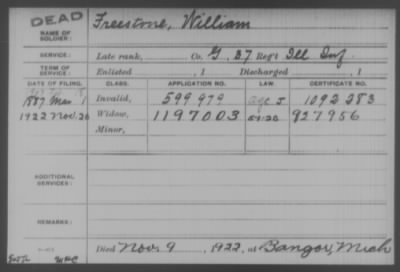 DEAD
NAME OF SOLDIER:
Freestone, William
SERVICE:
Late rank, Co. G 37 Reg't Ill Inf.
TERM OF SERVICE:
Enlisted , 1 Discharged , 1
DATE OF FILING. CLASS. APPLICATION NO. LAW. CERTIFICATE NO.
1887 Mar 1 Invalid, 599 979 age J 1092 283
1922 Nov. 20 Widow, 1197003 927956
Minor,
ADDITIONAL SERVICES:
REMARKS:
Died Nov. 9 , 1922, at Bangor, Mich